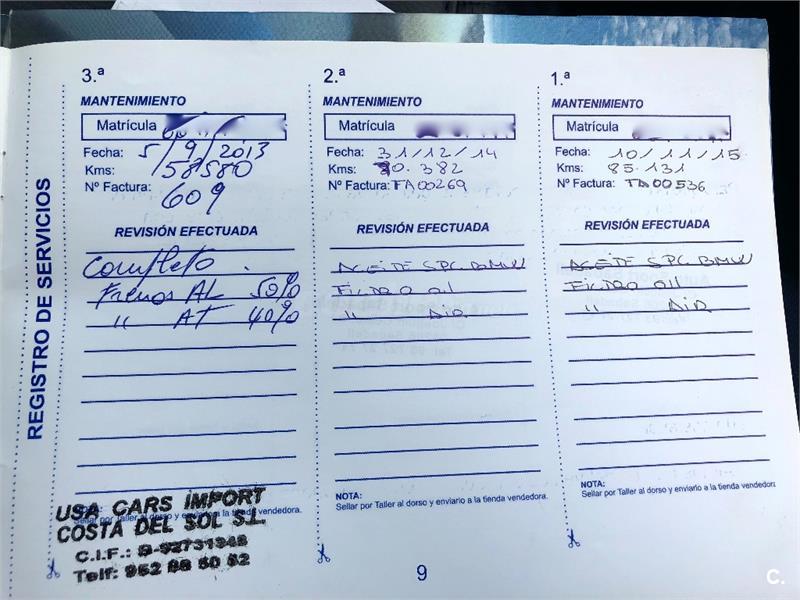 REGISTRO DE SERVICIOS
3.ª
MANTENIMIENTO
Matrícula
Fecha: 5/9/2013
Kms: 58580
Nº Factura: 609
REVISIÓN EFECTUADA
Completo.
Frenos AL 50%
" AT 40%
NOTA:
Sellar por Taller al dorso y enviarlo a la tienda vendedora.
USA CARS IMPORT
COSTA DEL SOL S.L.
C.I.F.: B-92731348
Telf: 952 88 50 52
2.ª
MANTENIMIENTO
Matrícula
Fecha: 31/12/14
Kms: 80.382
Nº Factura: TA00269
REVISIÓN EFECTUADA
ACEITE SPC BMW
FILTRO oil
" AIR
NOTA:
Sellar por Taller al dorso y enviarlo a la tienda vendedora.
1.ª
MANTENIMIENTO
Matrícula
Fecha: 10/11/15
Kms: 85.131
Nº Factura: TA00536
REVISIÓN EFECTUADA
ACEITE SPC BMW
FILTRO oil
" AIR
NOTA:
Sellar por Taller al dorso y enviarlo a la tienda vendedora
9
C.